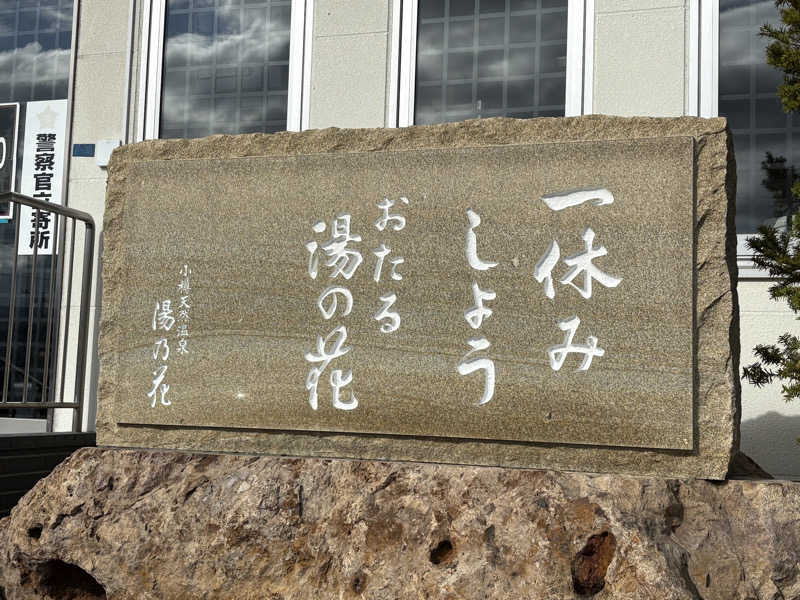 一休み
しよう
おたる
湯の花
小樽天然温泉
湯乃花
警察官立寄所